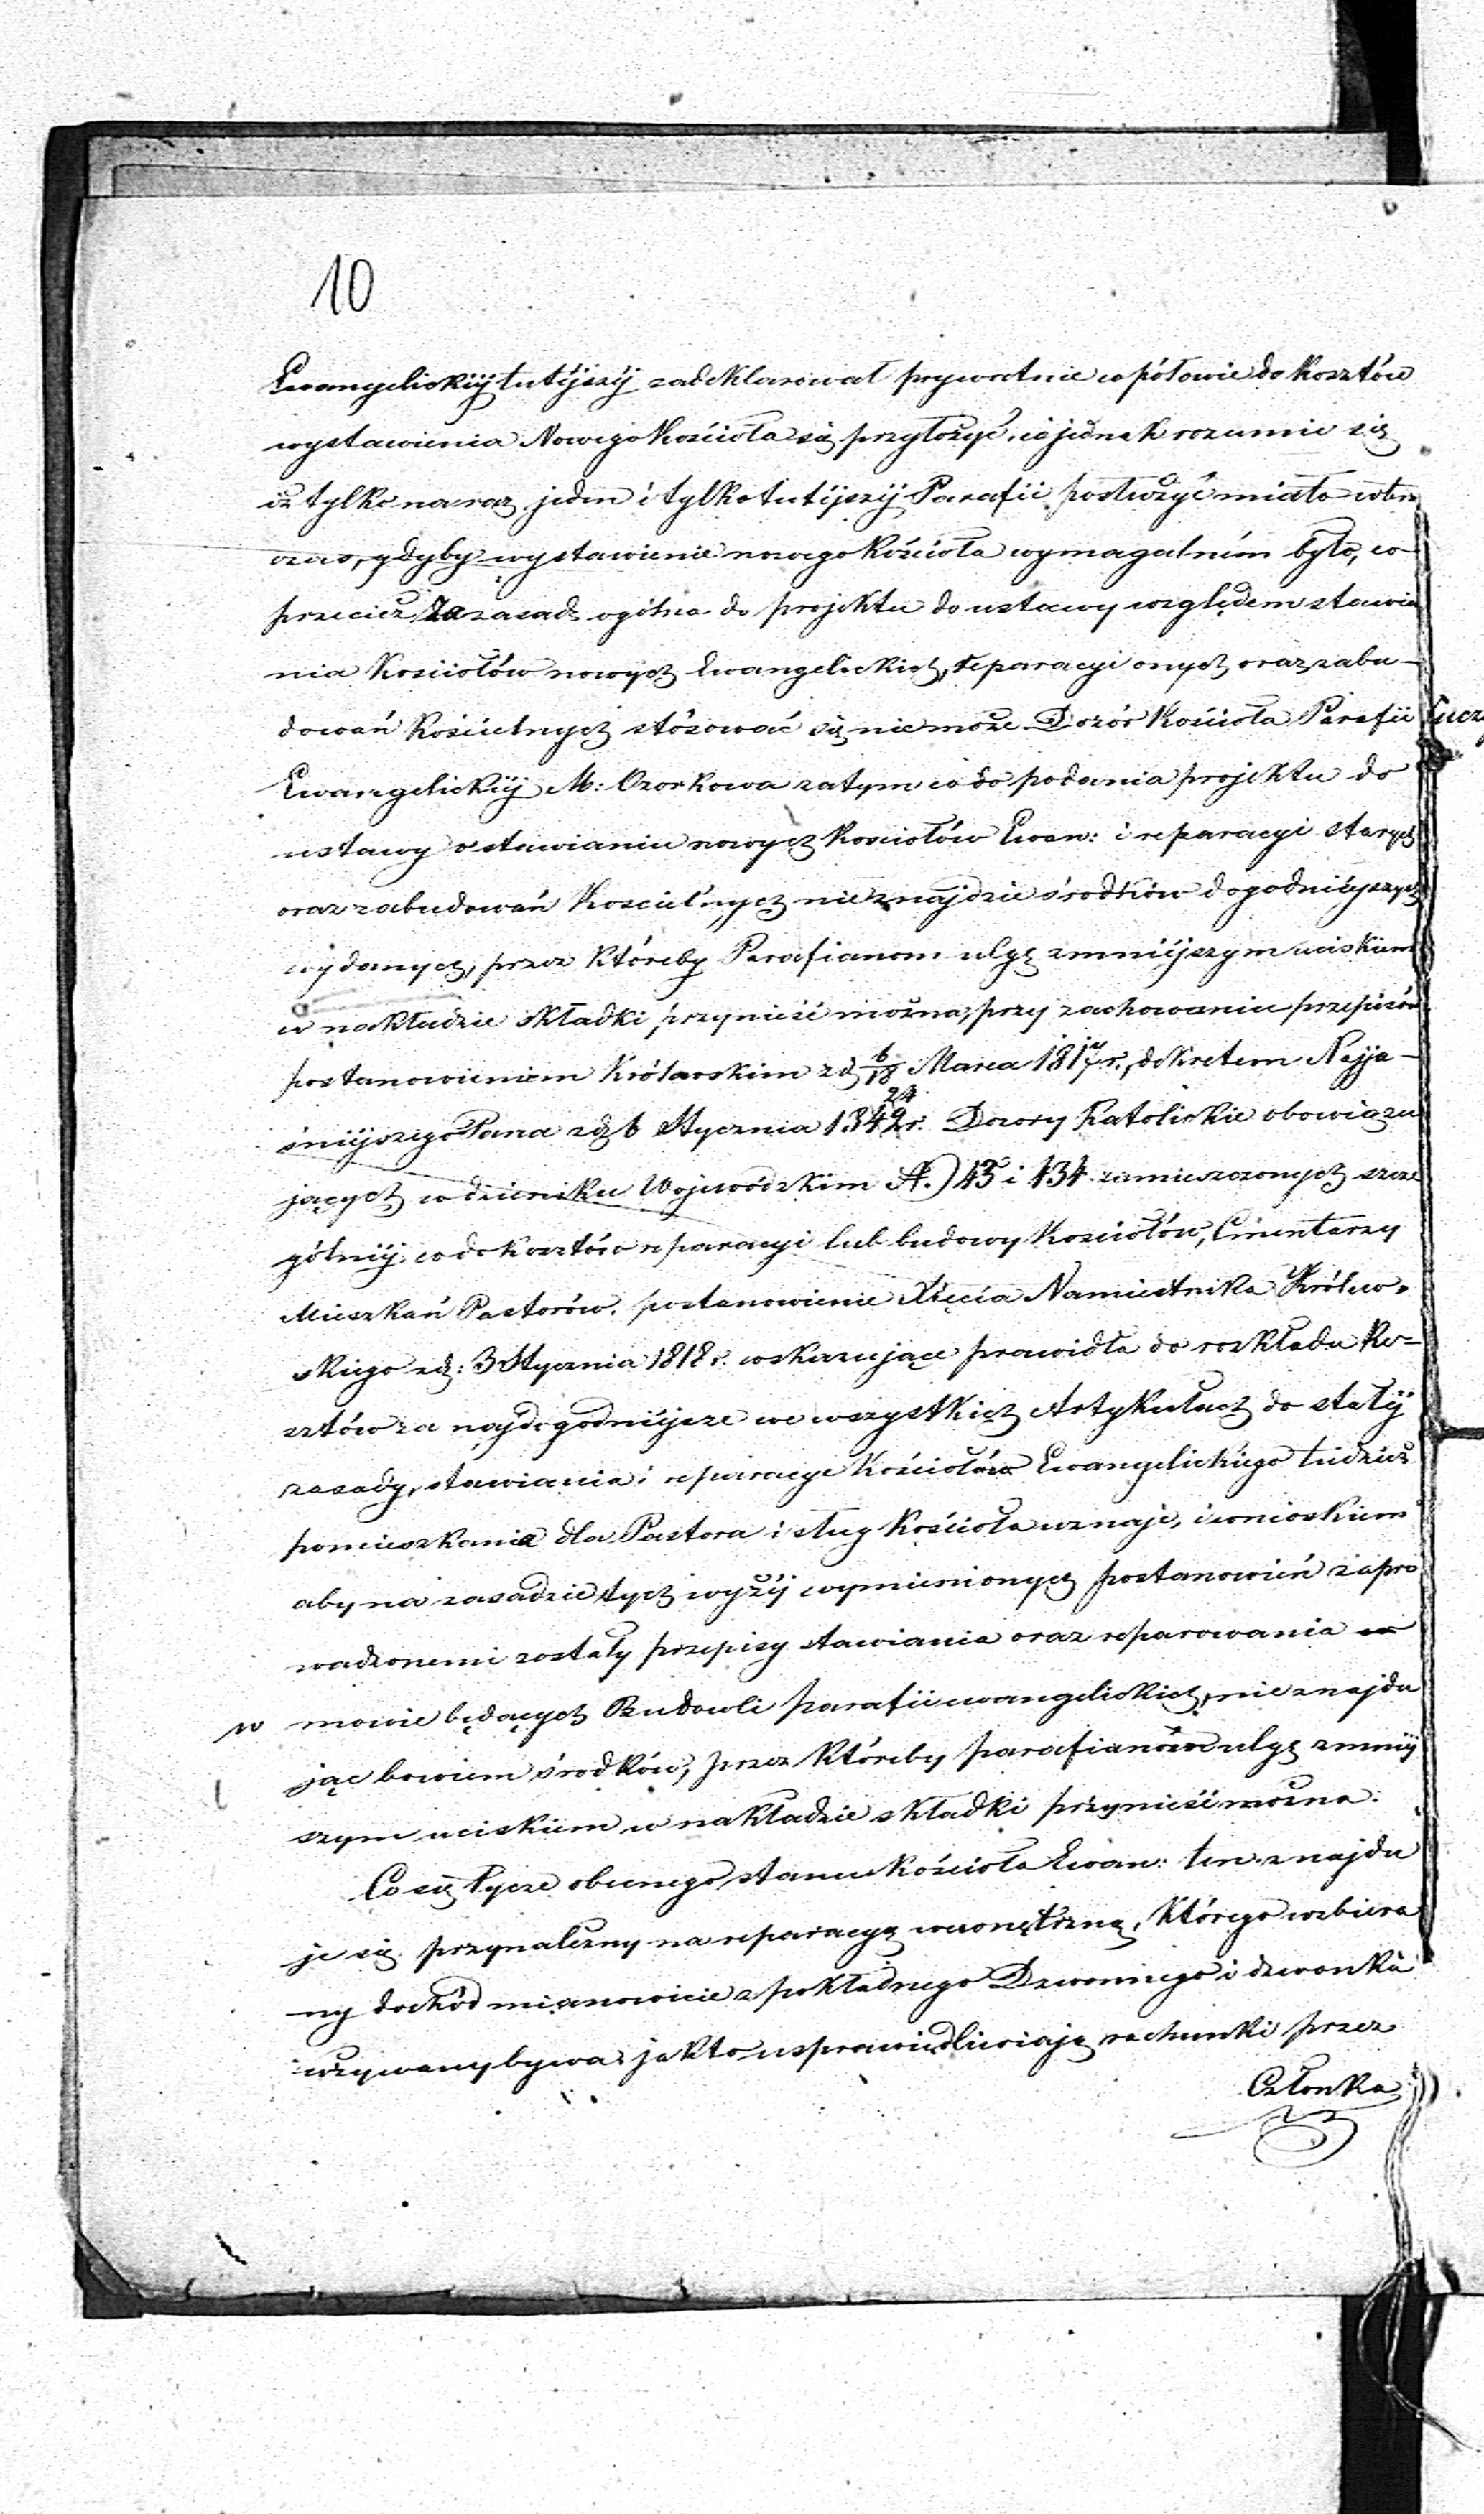 10
Ewangelickiij tutéjszéj zadeklarował prywatnie w połowie do kosztów
wystawienia Nowego Kościoła się przyłożyć, co jednak rozumie się
iż tylko na raz jeden i tylko tutéjszéj Parafii posłużyć miało wten
czas, gdyby wystawienie nowego Kościoła wymagalném było, co
przecież za zasadę ogólną do projektu do ustawy względem stawia
nia Kościołów nowych Ewangelickich, reparacyi onych oraz zabu-
dowań Kościelnych stósować się nie może Dozór Kościoła Parafii
Ewangelickiéj M: Ozorkowa zatym co do podania projektu do
ustawy o stawianiu nowych Kościołów Ewan: i reparacyi starych
oraz zabudowań Kościelnych nie znajdzie środków dogodniéjszych
wydanych, przez któreby Parafianom ulgę zmniéjszym uciskiem
w nakładzie składki przynieść można, przy zachowaniu przepisów
postanowieniem Królewskim z d 6/18 Marca 1817 r., dekretem Najja-
śniéjszego Pana z d 6 Stycznia 1842 r. Dozory Katolickie obowiązu
24
jących w dzieniku Wojewódzkim N.) 45 i 434 zamieszczonych szcze
gólniéj co do kosztów reparacyi lub budowy Kościołów, Cmentarzy
Mieszkań Pastorów, postanowienie Xięcia Namiestnika Królew-
skiego z d: 3 Stycznia 1818 r. wskazujące prawidła do rozkładu Ko-
sztów za najdogodniéjsze we wszystkich Artykułach do stałéj
zasady, stawiania i reparacye Kościołów Ewangelickiego tudzież
pomieszkania dla Pastora i sług Kościoła uznaje, i wnioskiem
aby na zasadzie tych wyżéj wymienionych postanowień zapro
wadzonemi zostały przepisy stawiania oraz reparowania w
w mowie będących Budowli parafii ewangelickich, nie znajdu
jąc bowiem środków, przez któreby parafianów ulgę zmniéj
szym uciskiem w nakładzie składki przynieść można.
Co się tycze obecnego stanu Kościoła Ewan: ten znajdu
je się przynależny na reparacyę wewnętrzną, którego wzbiera
ny dochód mianowicie z pokładnego Dzwonnego i dzwonka
używany bywa jak to usprawiedliwiają rachunki przez
Członka